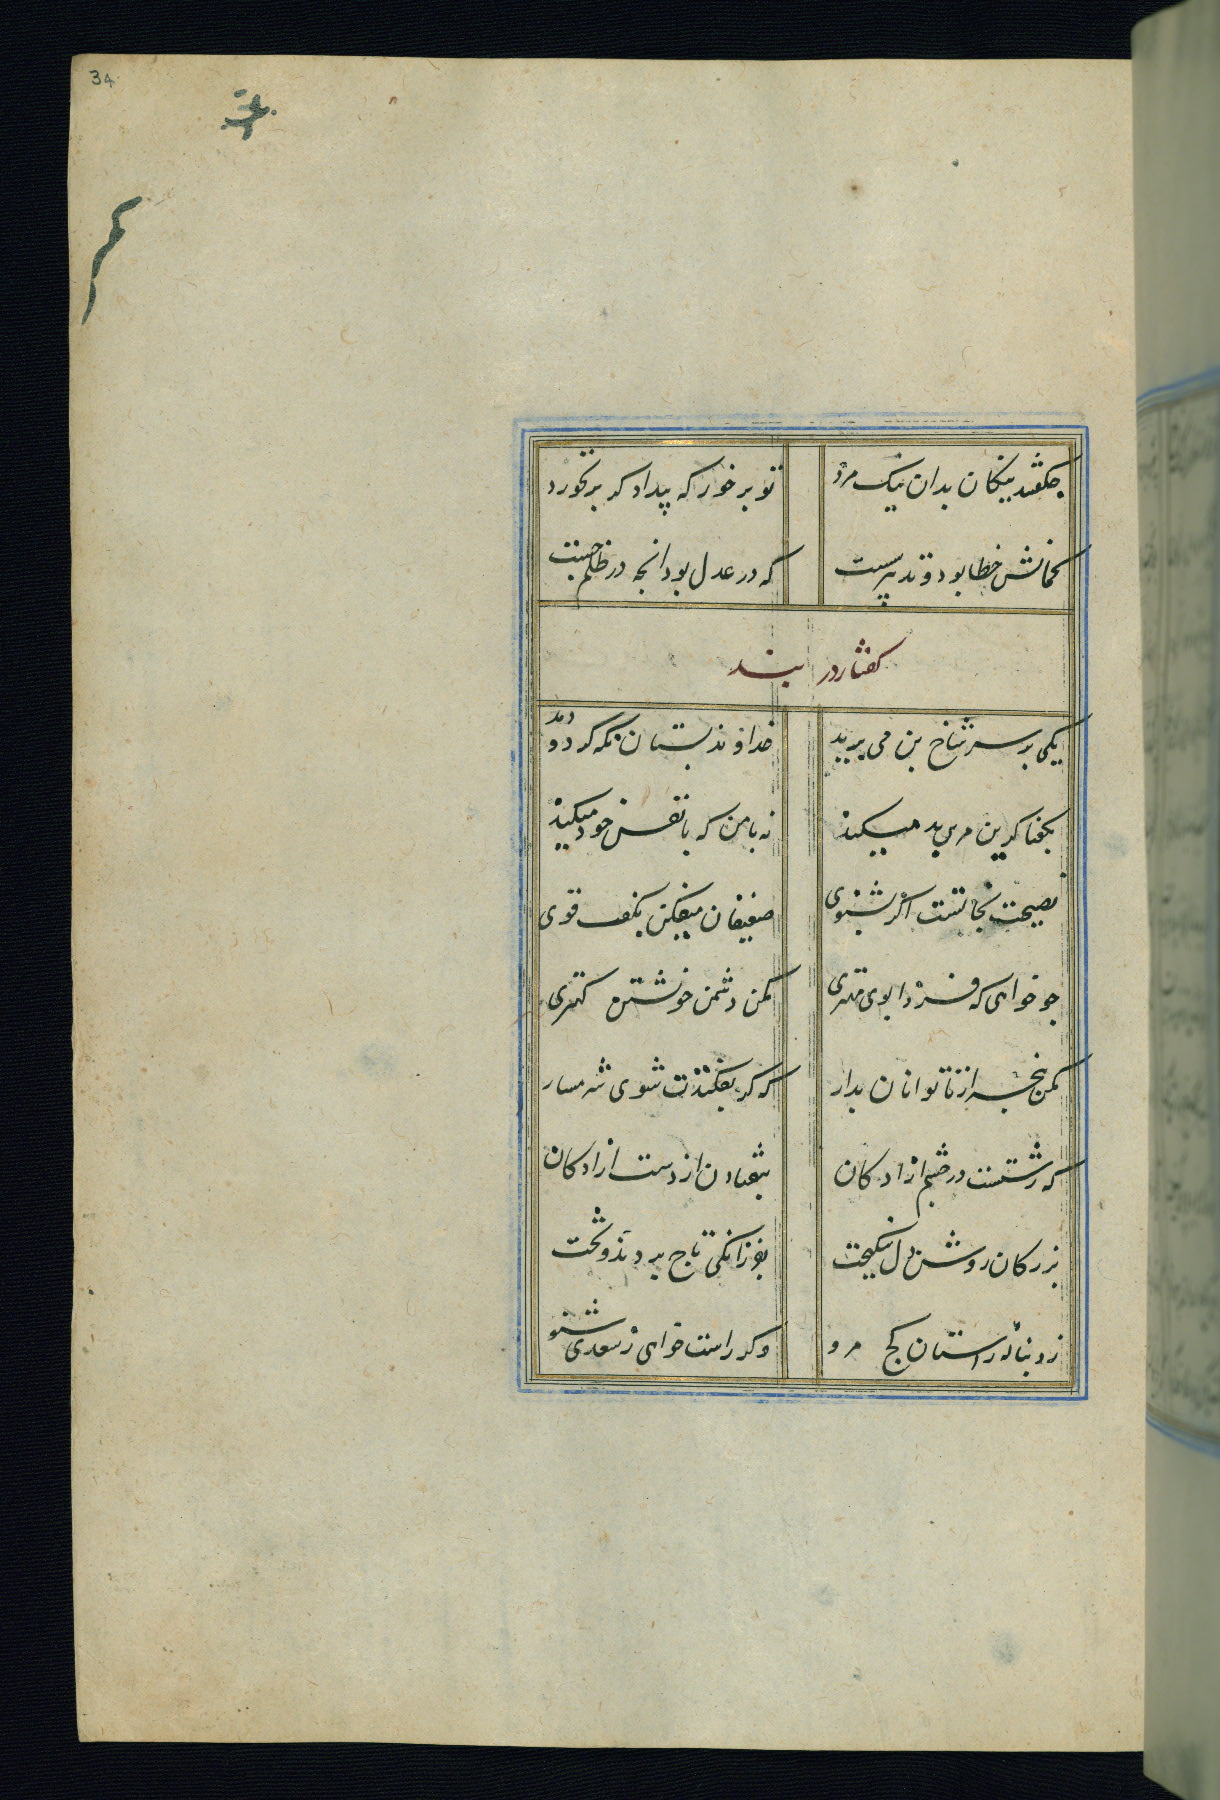 34
چه گفتند نیکان بدان نیک مرد تو برخور که بیداد کر بر نخورد
کمانش خطا بود و تدبیر سست که در عدل بود انچه در ظلم جست
کفتار در پند
یکی بر سر شاخ بن می برید خداوند بستان نکه کرد و دید
بکفتا کر این مرد بد میکند نه با من که با نفس خود میکند
نصیحت نجاتست اکر بشنوی ضعیفان میفکن بکف قوی
چو خواهی که فردا بوی مهتری مکن دشمن خویشتن کهتری
مکن پنجه از ناتوانان بدار که کر بفکنندت شوی شرمسار
که زشتست در چشم ازادکان بیفتادن از دست ازادکان
بزرکان روشن دل نیکبخت بفرزانکی تاج بردند و تخت
ز دنباله راستان کج مرو وکر راست خواهی ز سعدی شنو